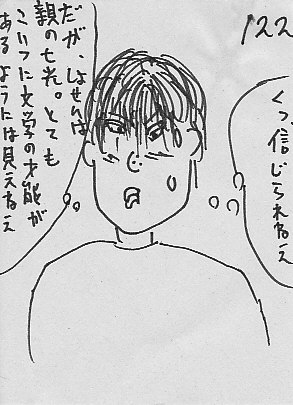 122
くっ、信じられねえ
だが、しょせんは
親の七光。とても
こいつに文学の才能が
あるようには見えねえ